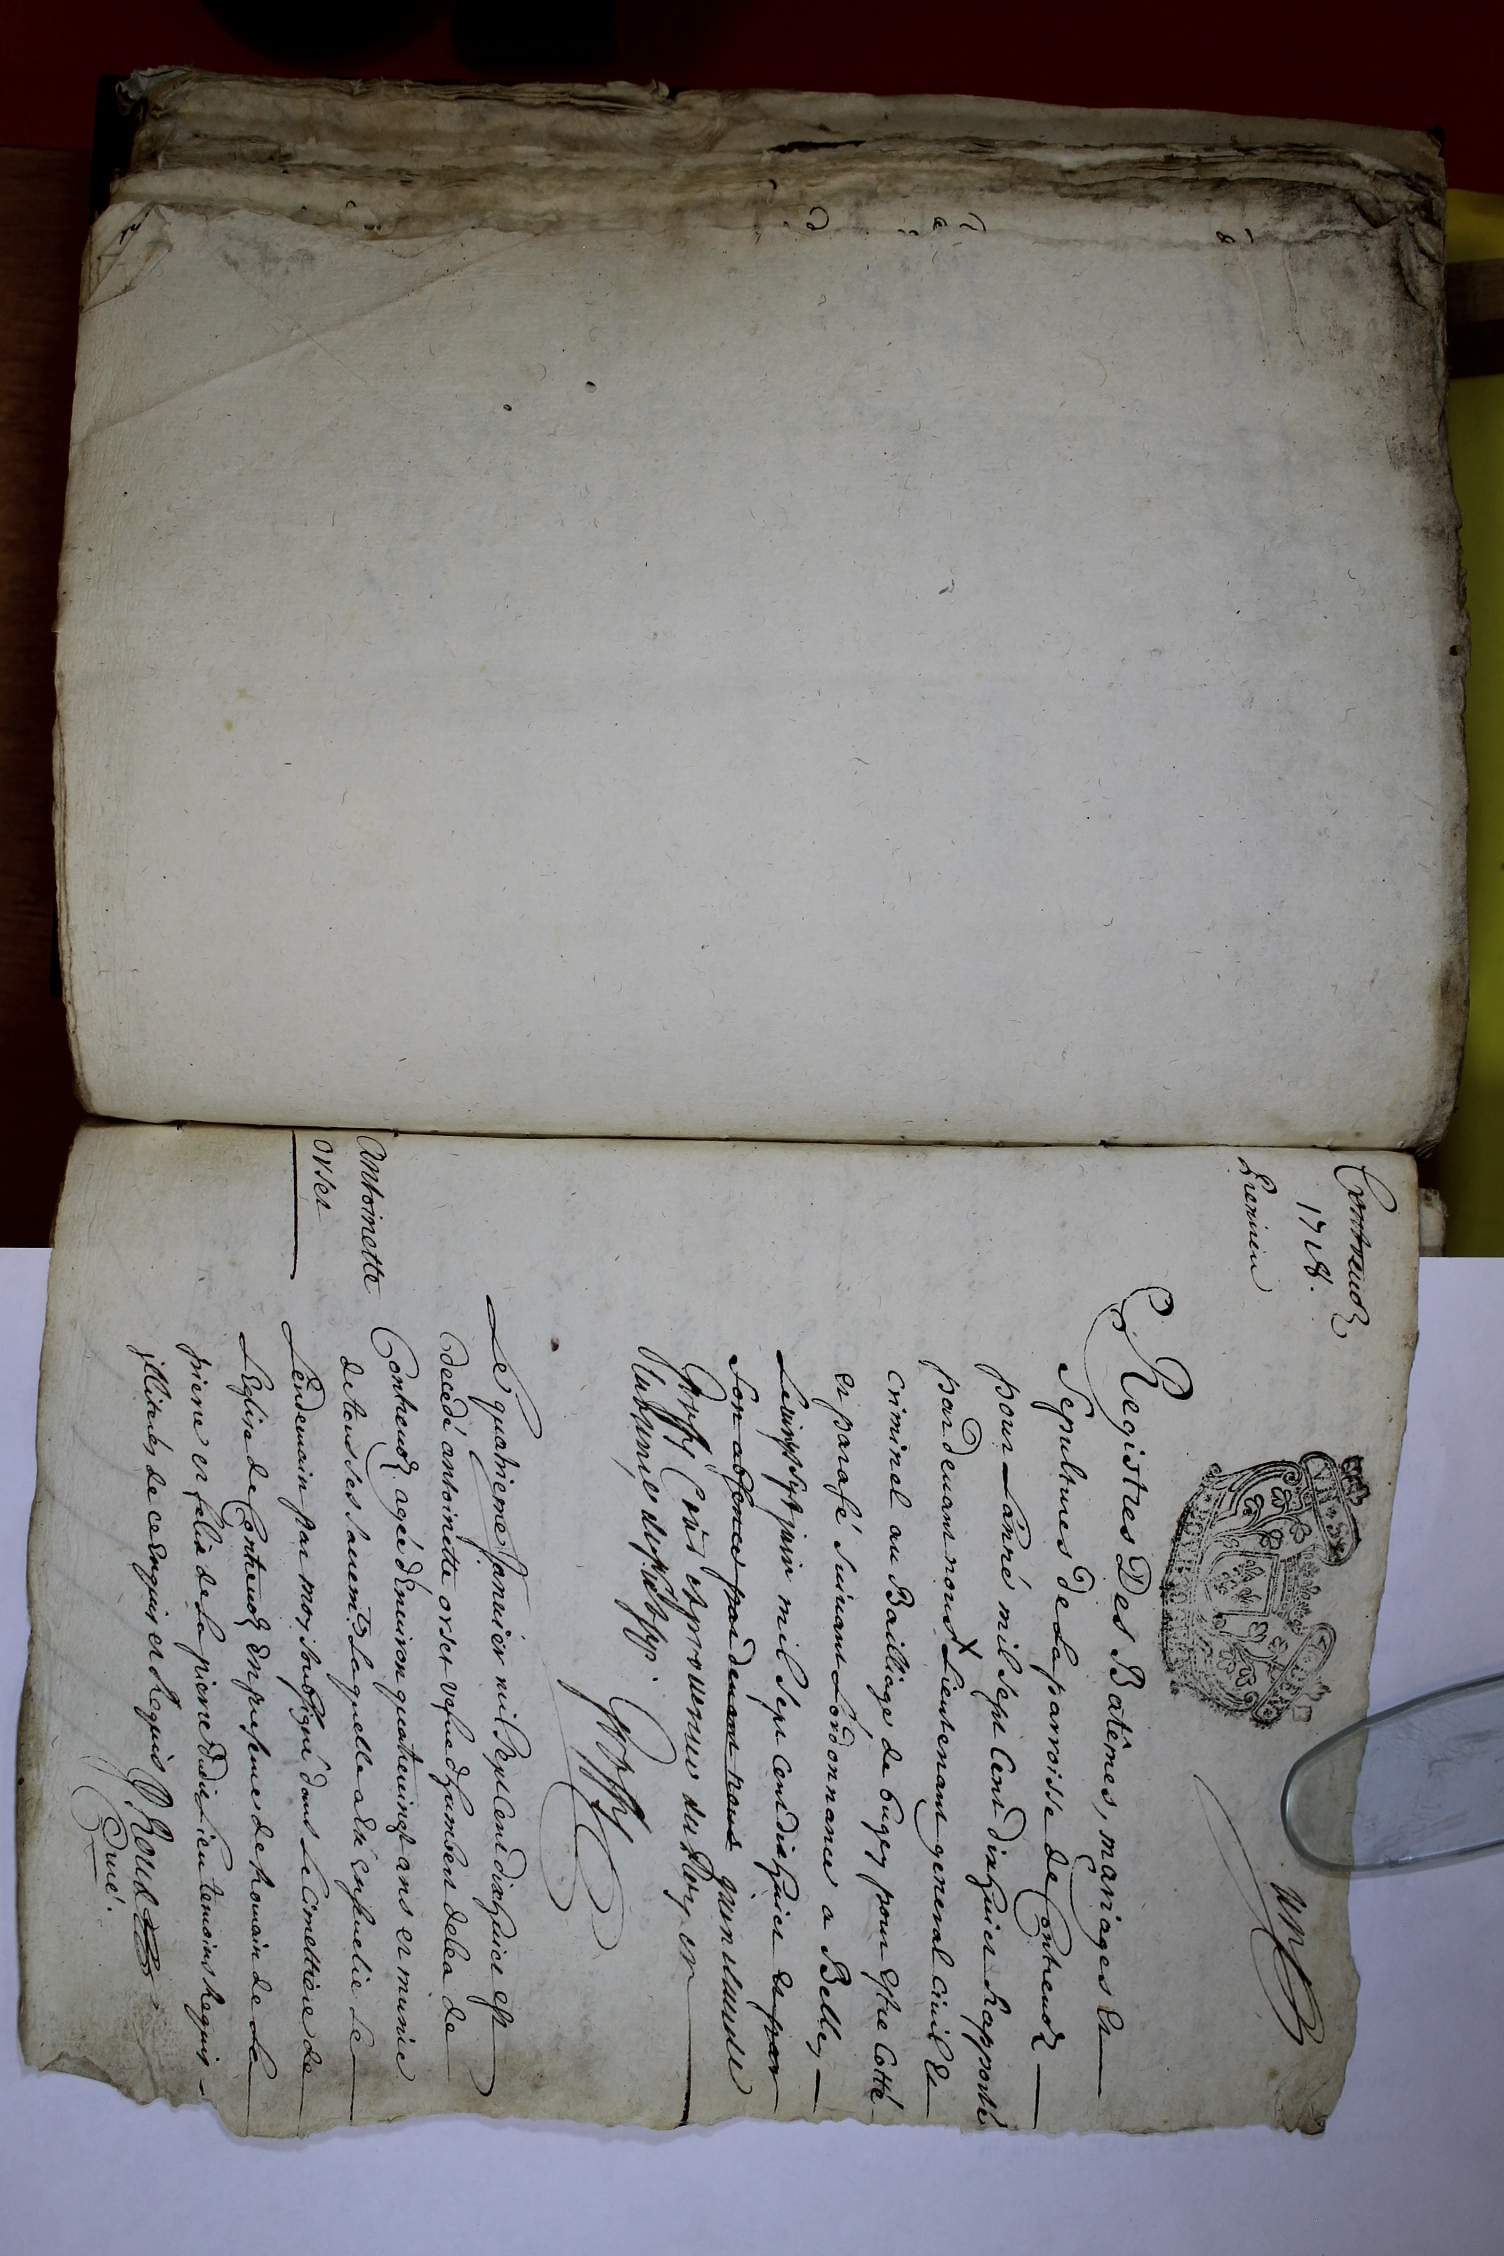 Contrevoz
1718.
premier
un
Registres Des Batêmes, mariages Et
Sepultures De La parroisse de Contrevoz
pour Lanné mil sept Cent dixhuict Rapporté
par devant nous Lieutenant general Civil Et
criminel au Bailliage de bugey pour Estre Cotté
et parafé suivant Lordonnance a Belley
Le juin mil sept Cent dixhuict Et par
son absence par devant nous
du Roy en
Le quatrieme janvier mil sept Cent dixhuict est
decedé antoinette orset vefve d'humbert delea de
Contrevoz agée d'Environ quatrevingt ans et munie
de tous ses sacremts. Laquelle a Eté Ensevelie Le
Lendemain par moy soubsigné dans Le Cimettiere de
L'Eglise de Contrevoz En presence de Romain de La
pierre et felix de La pierre dudit Lieu temoins Requis
illiterés de ce Enquis et Requis Roux
Curé.
Antoinette
orset